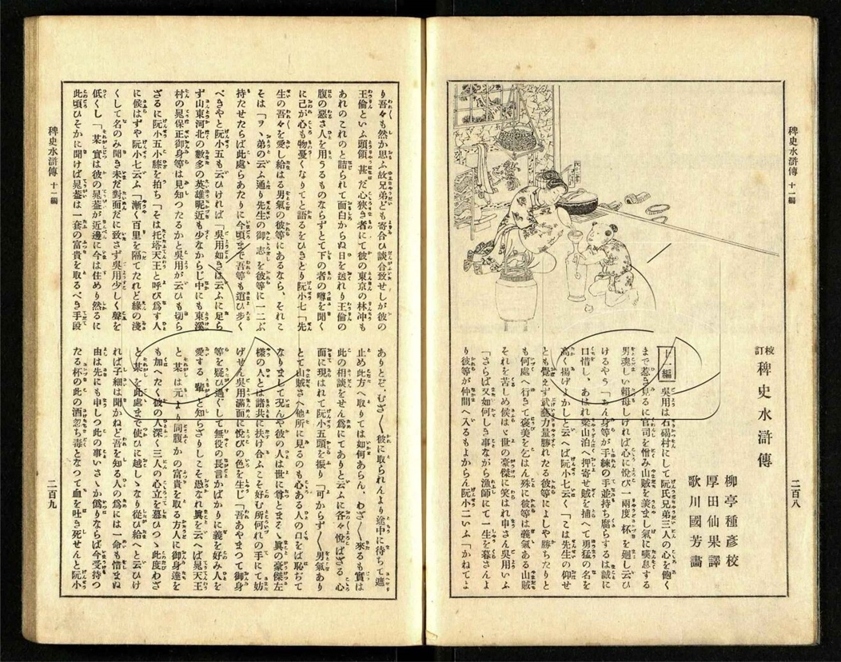 稗史水滸傳 十一編
二百八
校訂 稗史水滸傳
柳亭種彦校
厚田仙果譯
歌川國芳畵
十一編 吳用は石碣村にして阮氏兄弟三人の心を飽く
まで
見るに官司を憎み山賊を羨まし氣に嘆息する
男魂しい頼母しければ心に悅び一兩度杯を廻し云ひ
けるやう「
身等が手練の手並持ち腐らするは誠に
口惜し、あはれ梁山泊へ押寄せ賊を捕へて勇猛の名を
高く揚げよかしと云へば阮小七云く「こは先生の仰せ
とも覺えず武藝力量勝れたる彼等によしや勝ちたりと
も何處へ行きて褒美を乞はん殊に彼等は義氣ある山賊
それを苦しめ候はゞ世の豪傑に笑はれ申さん吳用いふ
「さらば又如何しき事ながら漁師にて一生を暮さんよ
り彼等が仲間へ入るもよからん阮小二いふ「かねてよ
り吾々も然か思ふ故兄弟ども寄合ひ談合致せしが彼の
王倫といふ頭領甚だ心狹き者にて彼の東京の林冲も
あれのこれのと詰られて面白からぬ日を送れり王倫の
腹の惡さ人を用うるものならずとて下の者の噂を聞く
に己が心も物憂くなりてと語るをひきとり阮小七「先
生の吾々を愛し給はる男氣の彼等にあるなら、それこ
そは「ヲヽ弟の云ふ通り先生の御志を彼等に一二ぶ
持たせたらば此處らあたりに今頃まで吾等も遊び歩く
べきやと阮小五も云ひければ「吳用如きは云ふに足ら
ず山東河北の數多の英雄昵近も少なからじ中にも東溪
村の晁保正御身等は見知つたるかと吳用が云ひも切ら
ざるに阮小五小膝を拍ち「そは托塔天王と呼び爲す人
に候はずや阮小七云ふ「漸く百里を隔てたれど緣の淺
くして名のみ聞き未だ對面だに致さず吳用少しく聲を
低くし「某實は彼の晁蓋が近邊に今は住めり然るに
此頃ひそかに聞けば晁蓋は一套の富貴を取るべき手段
ありとぞ、むざ〳〵彼に取られんより途中に待ちて遮
止め此方へ取りては如何あらん、わざ〳〵來るも實は
此の相談をせん爲にてありと云ふに各々悅ばざる心
面に現はれて阮小五頭を振り「可からず〳〵男氣あり
とて山賊さへ他所に見るのも心ある人の口をば恥ぢて
なりまして況んや彼の人は世に尊とまるゝ眞の豪傑左
樣の人とは諸共に扶け合ふこそ好む所何れの手にて妨
げせん吳用滿面に悅びの色を生じ「吾あやまつて御身
等を疑ひ過ぐして無役の長言かばかりに義を好み人を
愛する輩と知らざりしこそ愚なれ實を云へば晁天王
と某は元より同腹かの富貴を取る方人に御身達を
も加へたく彼の人深く三人の心立を慕ひつゝ此度わざ
と某を此處まで使ひに越しゝなり從ひ給へと云ひけ
れば子細は聞かねど吾を知る人の爲には一命も惜まぬ
由は先にも申しつ此の事いさゝか僞りならば今受持つ
たる杯の此の酒忽ち毒となつて血を吐き死せんと阮小
稗史水滸傳 十一編
二百九